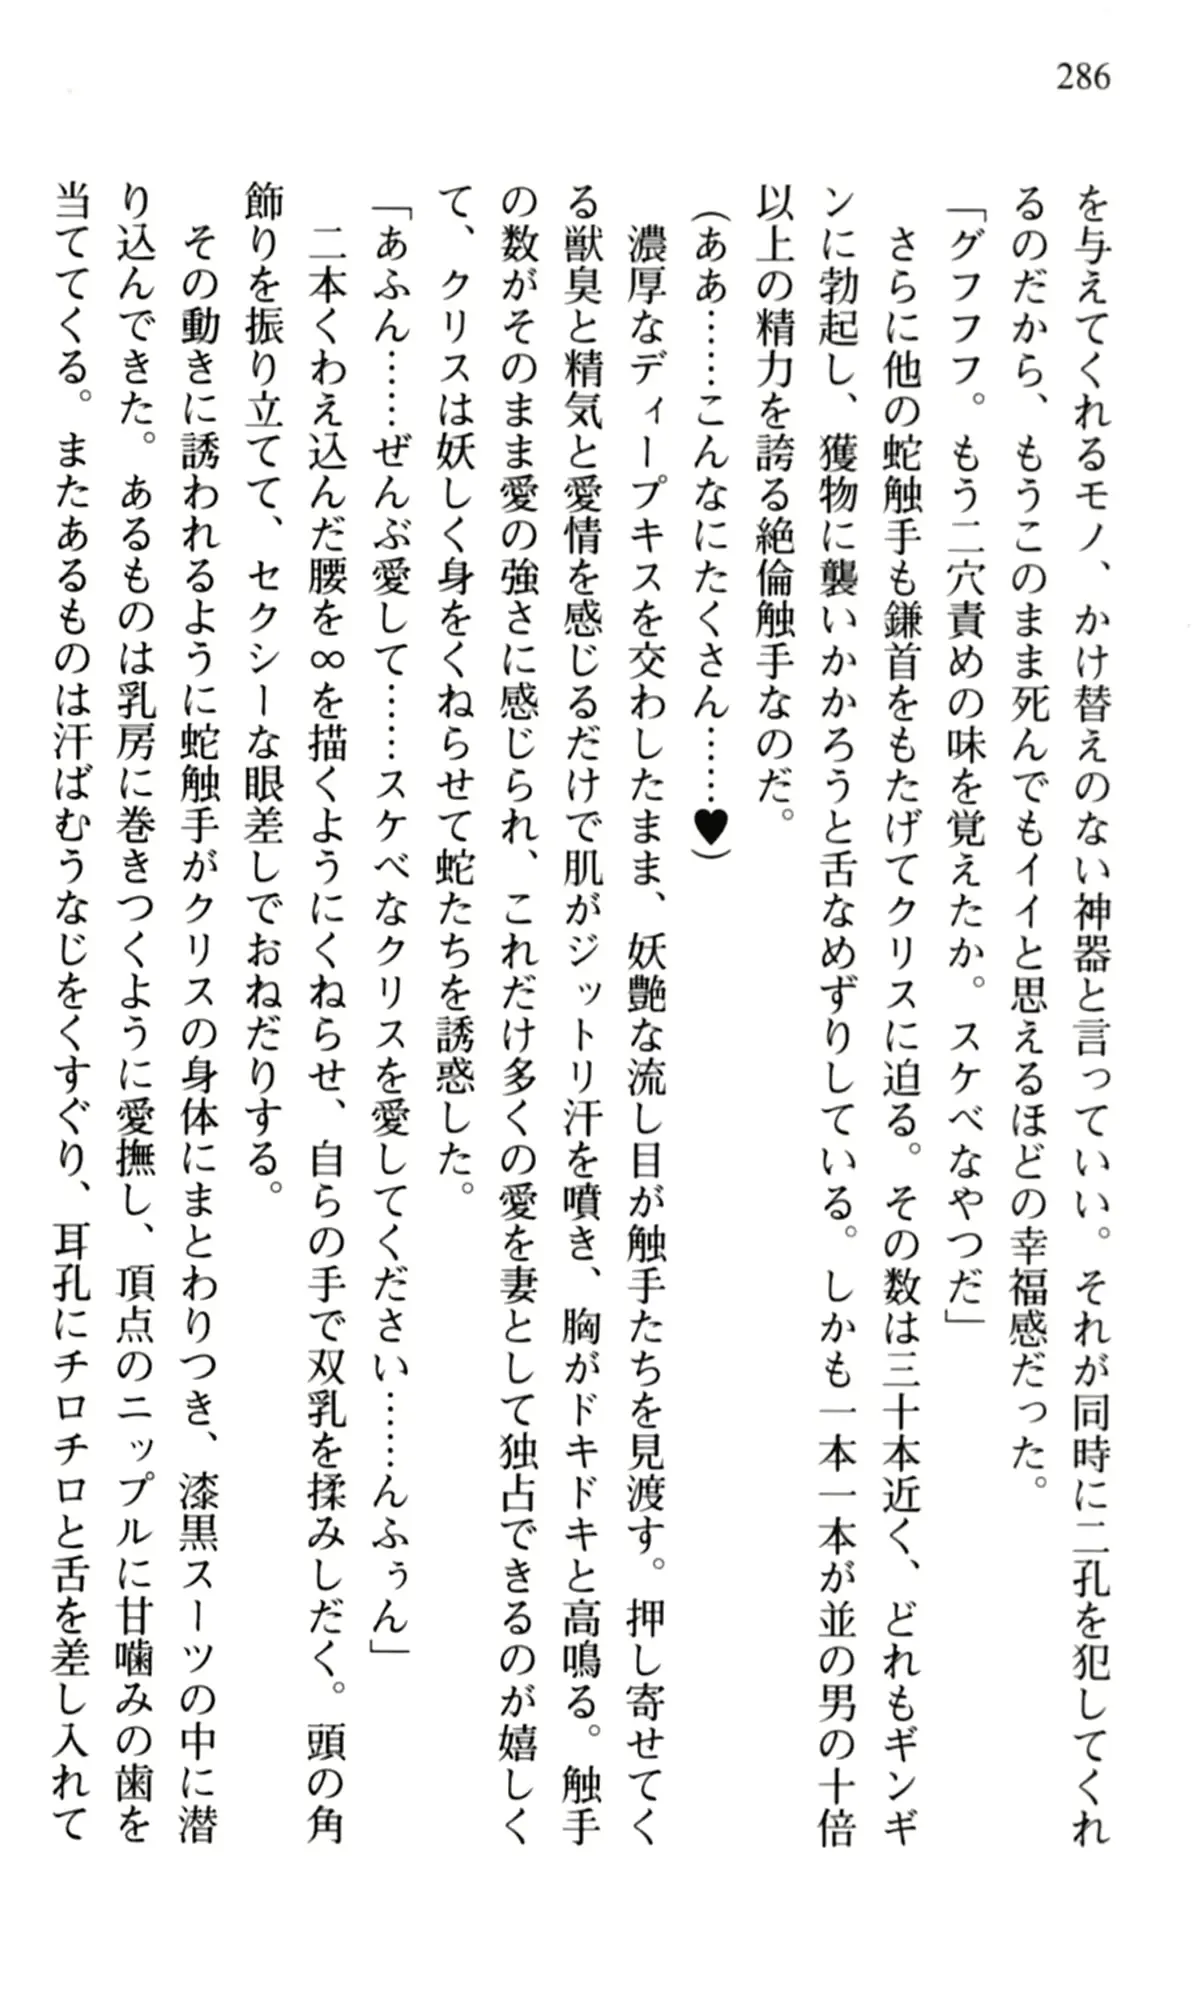 286
を与えてくれるモノ、かけ替えのない神器と言っていい。それが同時に二孔を犯してくれ
るのだから、もうこのまま死んでもイイと思えるほどの幸福感だった。
「グフフフ。もう二穴責めの味を覚えたか。スケベなやつだ」
さらに他の蛇触手も鎌首をもたげてクリスに迫る。その数は三十本近く、どれもギンギ
ンに勃起し、獲物に襲いかかろうと舌なめずりしている。しかも一本一本が並の男の十倍
以上の精力を誇る絶倫触手なのだ。
(ああ……こんなにたくさん……♥)
濃厚なディープキスを交わしたまま、妖艶な流し目が触手たちを見渡す。押し寄せてく
る獣臭と精気と愛情を感じるだけで肌がジットリ汗を噴き、胸がドキドキと高鳴る。触手
の数がそのまま愛の強さに感じられ、これだけ多くの愛を妻として独占できるのが嬉しく
て、クリスは妖しく身をくねらせて蛇たちを誘惑した。
「あふん……ぜんぶ愛して……スケベなクリスを愛してください……んふぅん」
二本くわえ込んだ腰を∞を描くようにくねらせ、自らの手で双乳を揉みしだく。頭の角
飾りを振り立てて、セクシーな眼差しでおねだりする。
その動きに誘われるように蛇触手がクリスの身体にまとわりつき、漆黒スーツの中に潜
り込んできた。あるものは乳房に巻きつくように愛撫し、頂点のニップルに甘噛みの歯を
当ててくる。またあるものは汗ばむうなじをくすぐり、耳孔にチロチロと舌を差し入れて